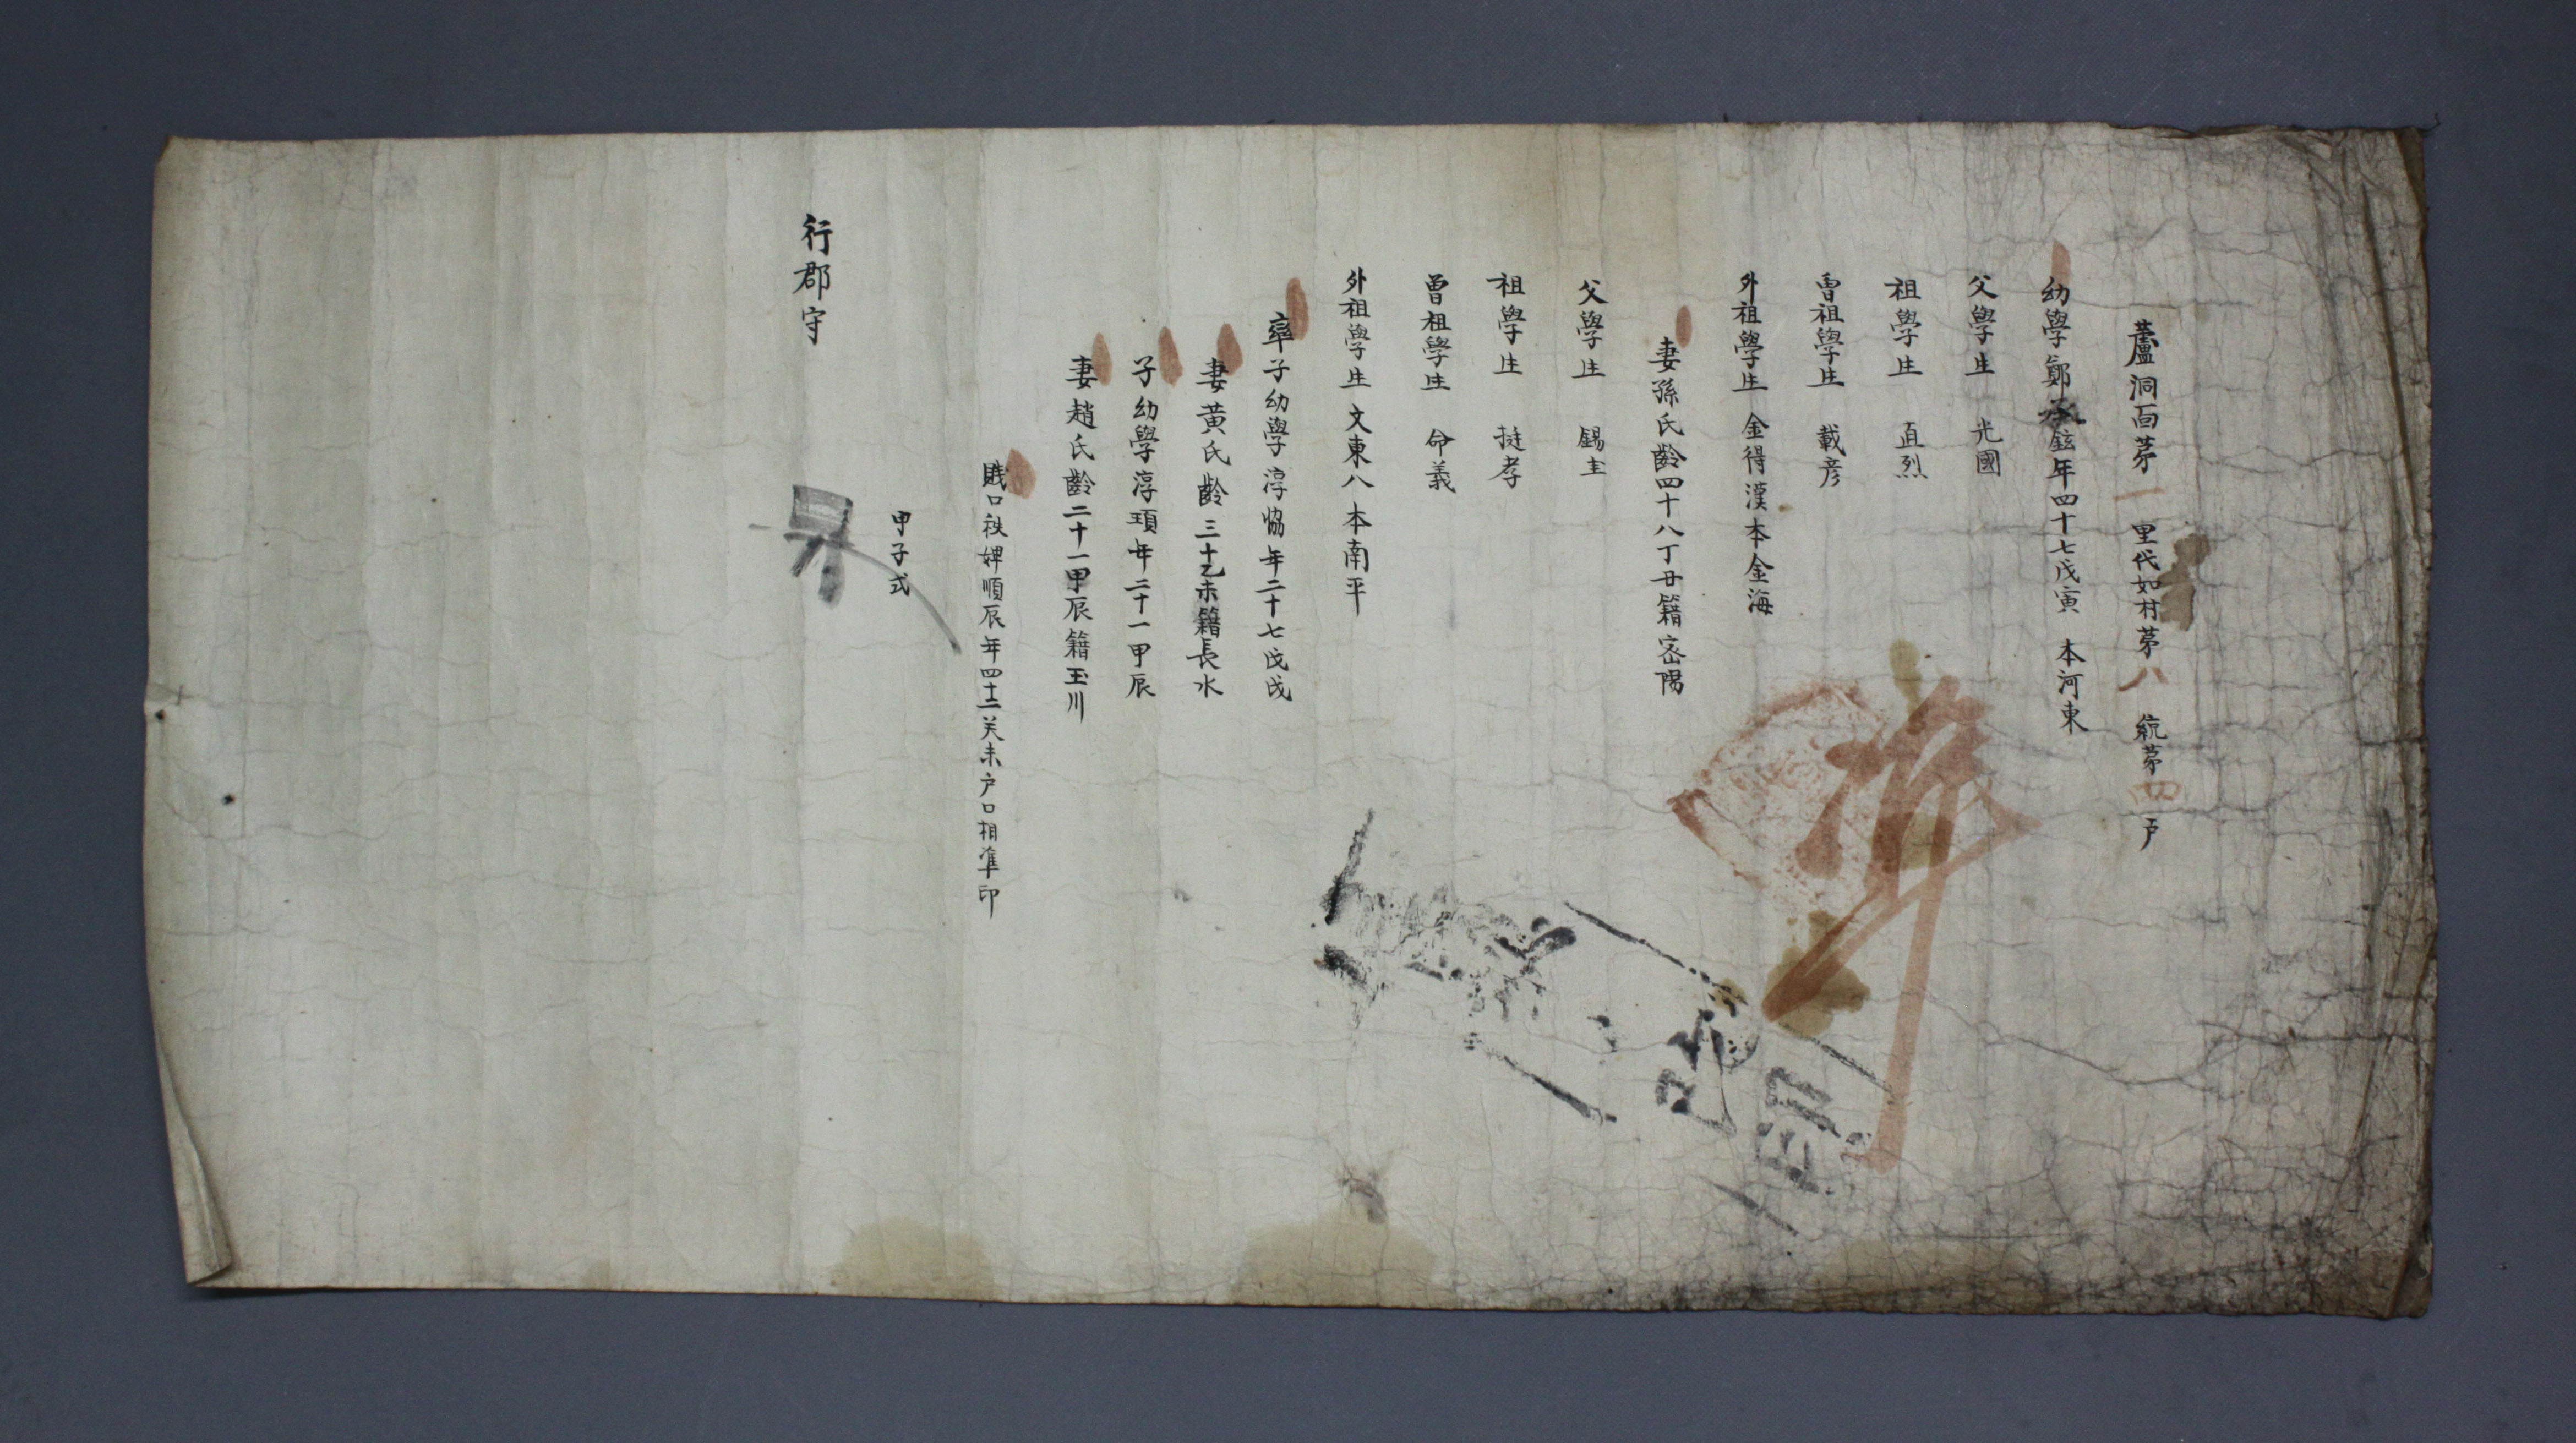 蘆洞面茅一里代如村茅八統茅四戶
幼學鄭承鉉年四十七戊寅 本河東
父學生 光國
祖學生 直烈
曾祖學生 載彦
外祖學生 金得漢本金海
妻孫氏齡四十八丁丑籍密陽
父學生 錫圭
祖學生 挺孝
曾祖學生 命義
外祖學生 文東八本南平
率子幼學淳恊年二十七戊戌
妻黃氏齡三十乙未籍長水
子幼學淳頊年二十一甲辰
妻趙氏齡二十一甲辰籍玉川
賤口秩婢順辰年四十二癸未戶口相準印
甲子式
行郡守
準